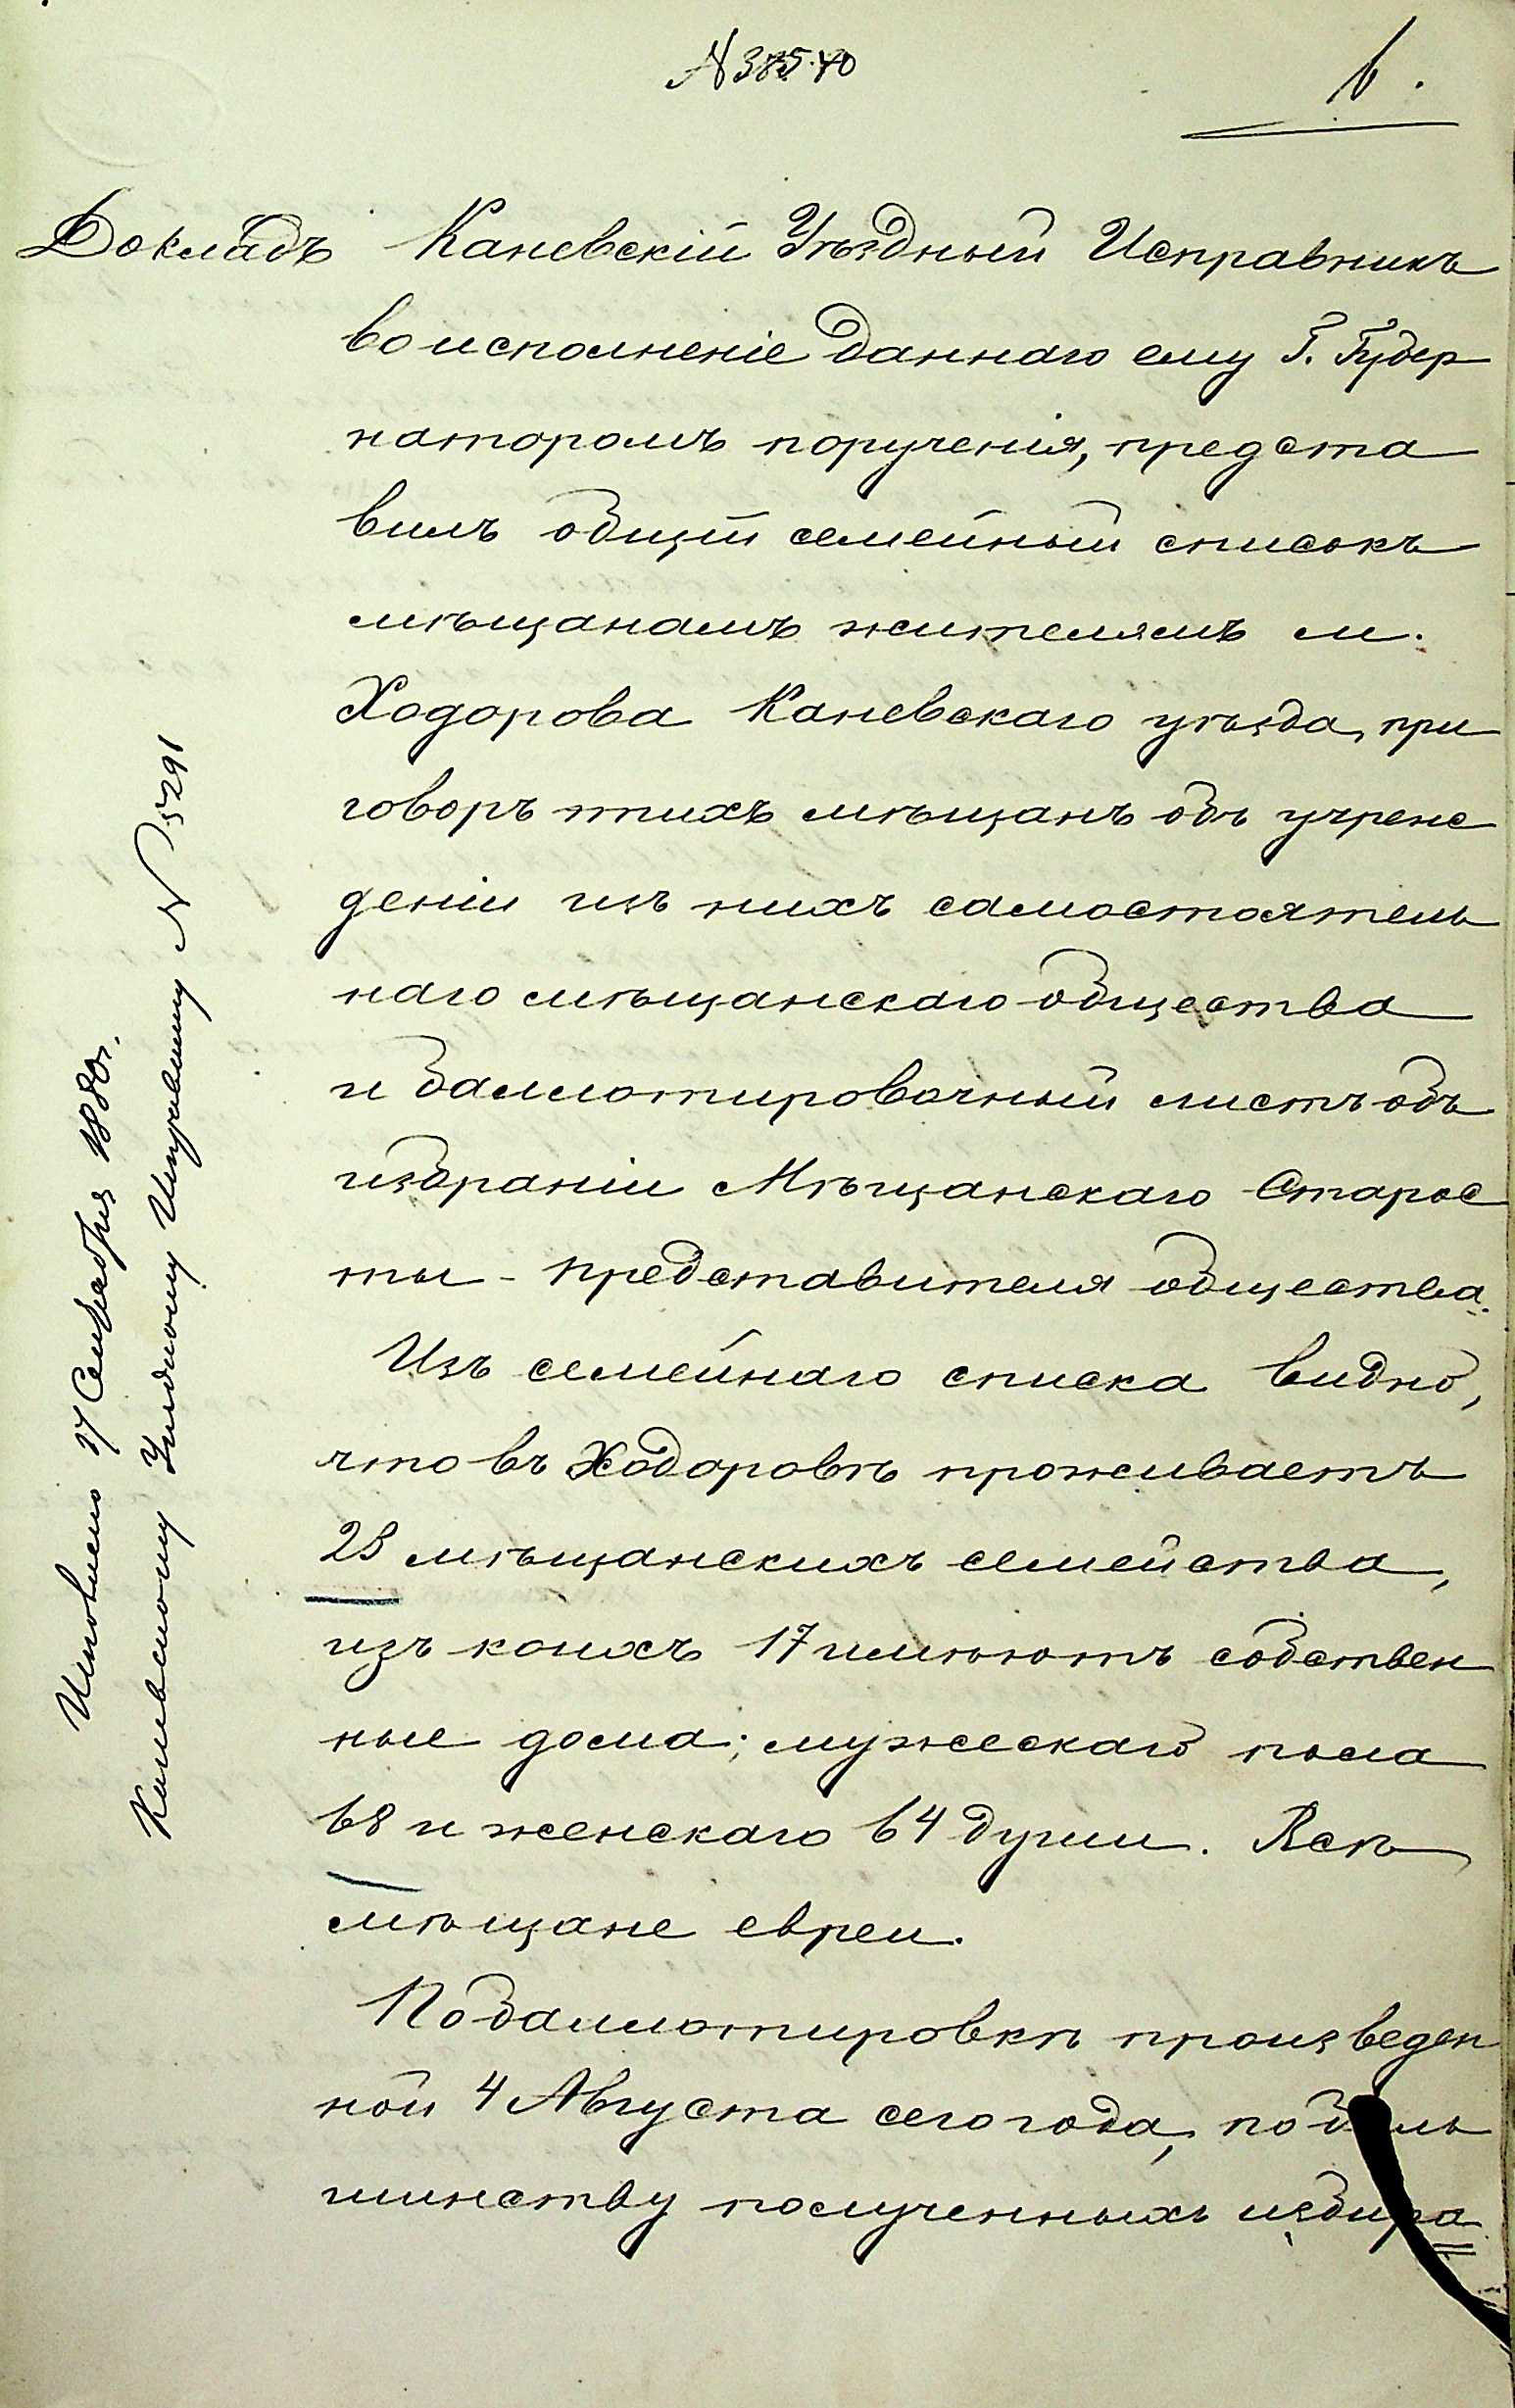 6.
Докладъ
Каневскій Уѣздный Исправникъ
во исполненіе даннаго ему Г. Губер
наторомъ порученія, предста
вилъ общій семейный списокъ
мѣщанамъ жителямъ м.
Ходорова Каневскаго уѣзда, при
говоръ этихъ мѣщанъ объ учреж
деніи изъ нихъ самостоятель
наго мѣщанскаго общества
и баллотировочный листъ объ
избраніи Мѣщанскаго Старос
ты - представителя общества.
Изъ семейнаго списка видно,
что въ Ходоровѣ проживаетъ
23 мѣщанскихъ семейства,
изъ коихъ 17 имѣютъ собствен
ные дома; мужескаго пола
68 и женскаго 64 души. Всѣ
мѣщане евреи.
По баллотировкѣ произведен
ной 4 Августа сего года, по боль
шинству полученныхъ избира
Сентября 1880г.
Каневскому Уѣздному Исправнику N 5291